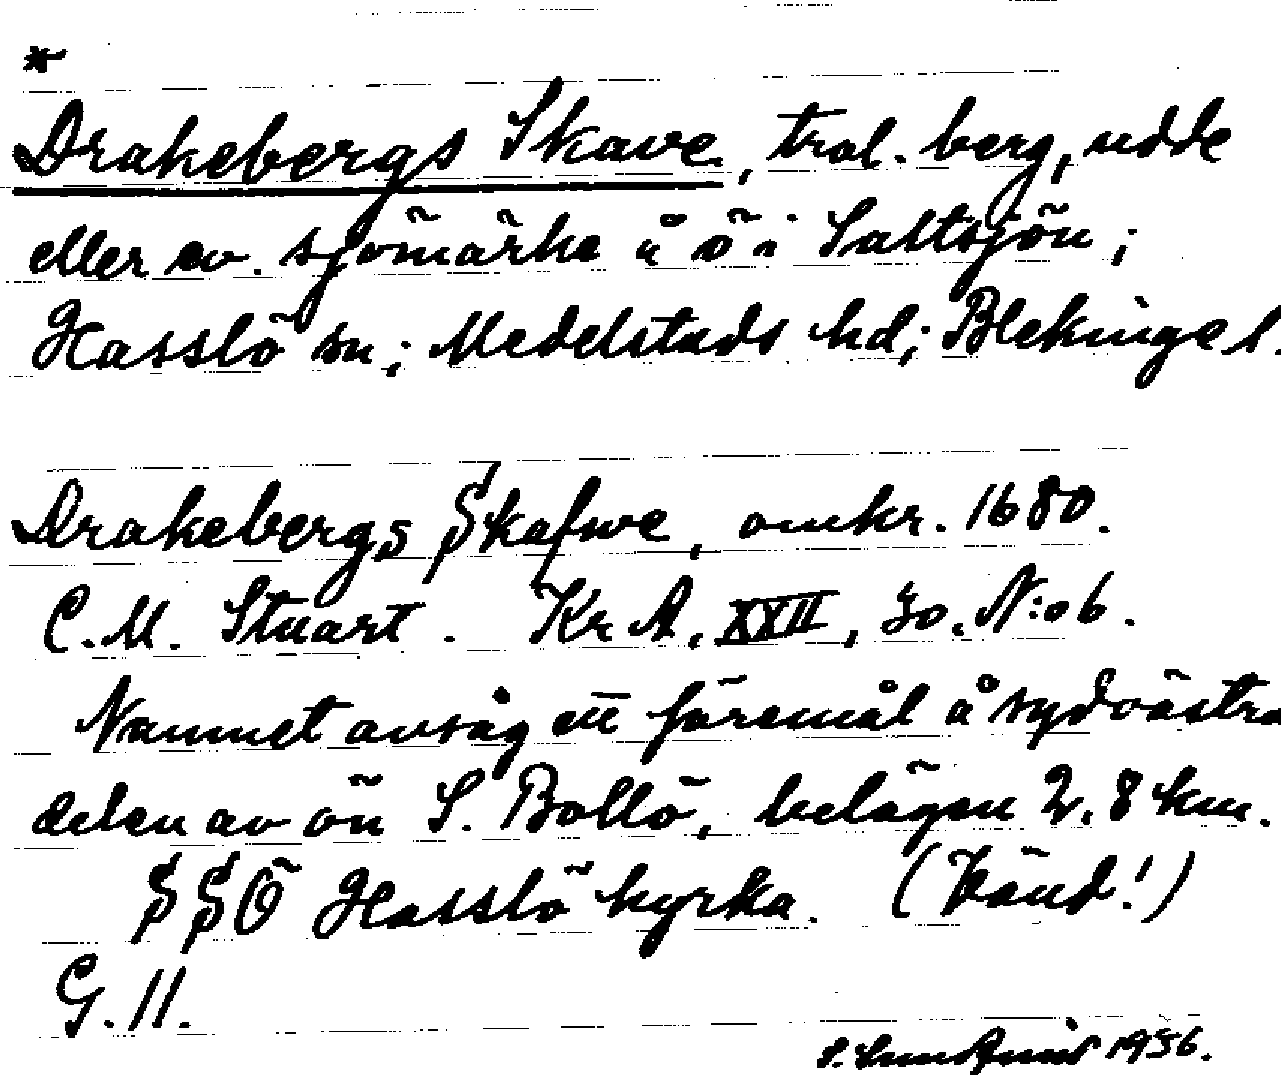 *
Drakebergs Skave, trol. berg, udde
eller ev. sjömärke å ö i Saltsjön;
Hasslö sn; Medelstads hd; Blekinge l.
Drakebergs Skafwe, omkr. 1680.
C.M. Stuart. Kr A, XXII, 30. N:o 6.
Namnet avsåg ett föremål å sydvästra
delen av ön S. Bollö, belägen 2,8 km.
SSÖ Hasslö kyrka. (Känd!)
G. 11.
1956.